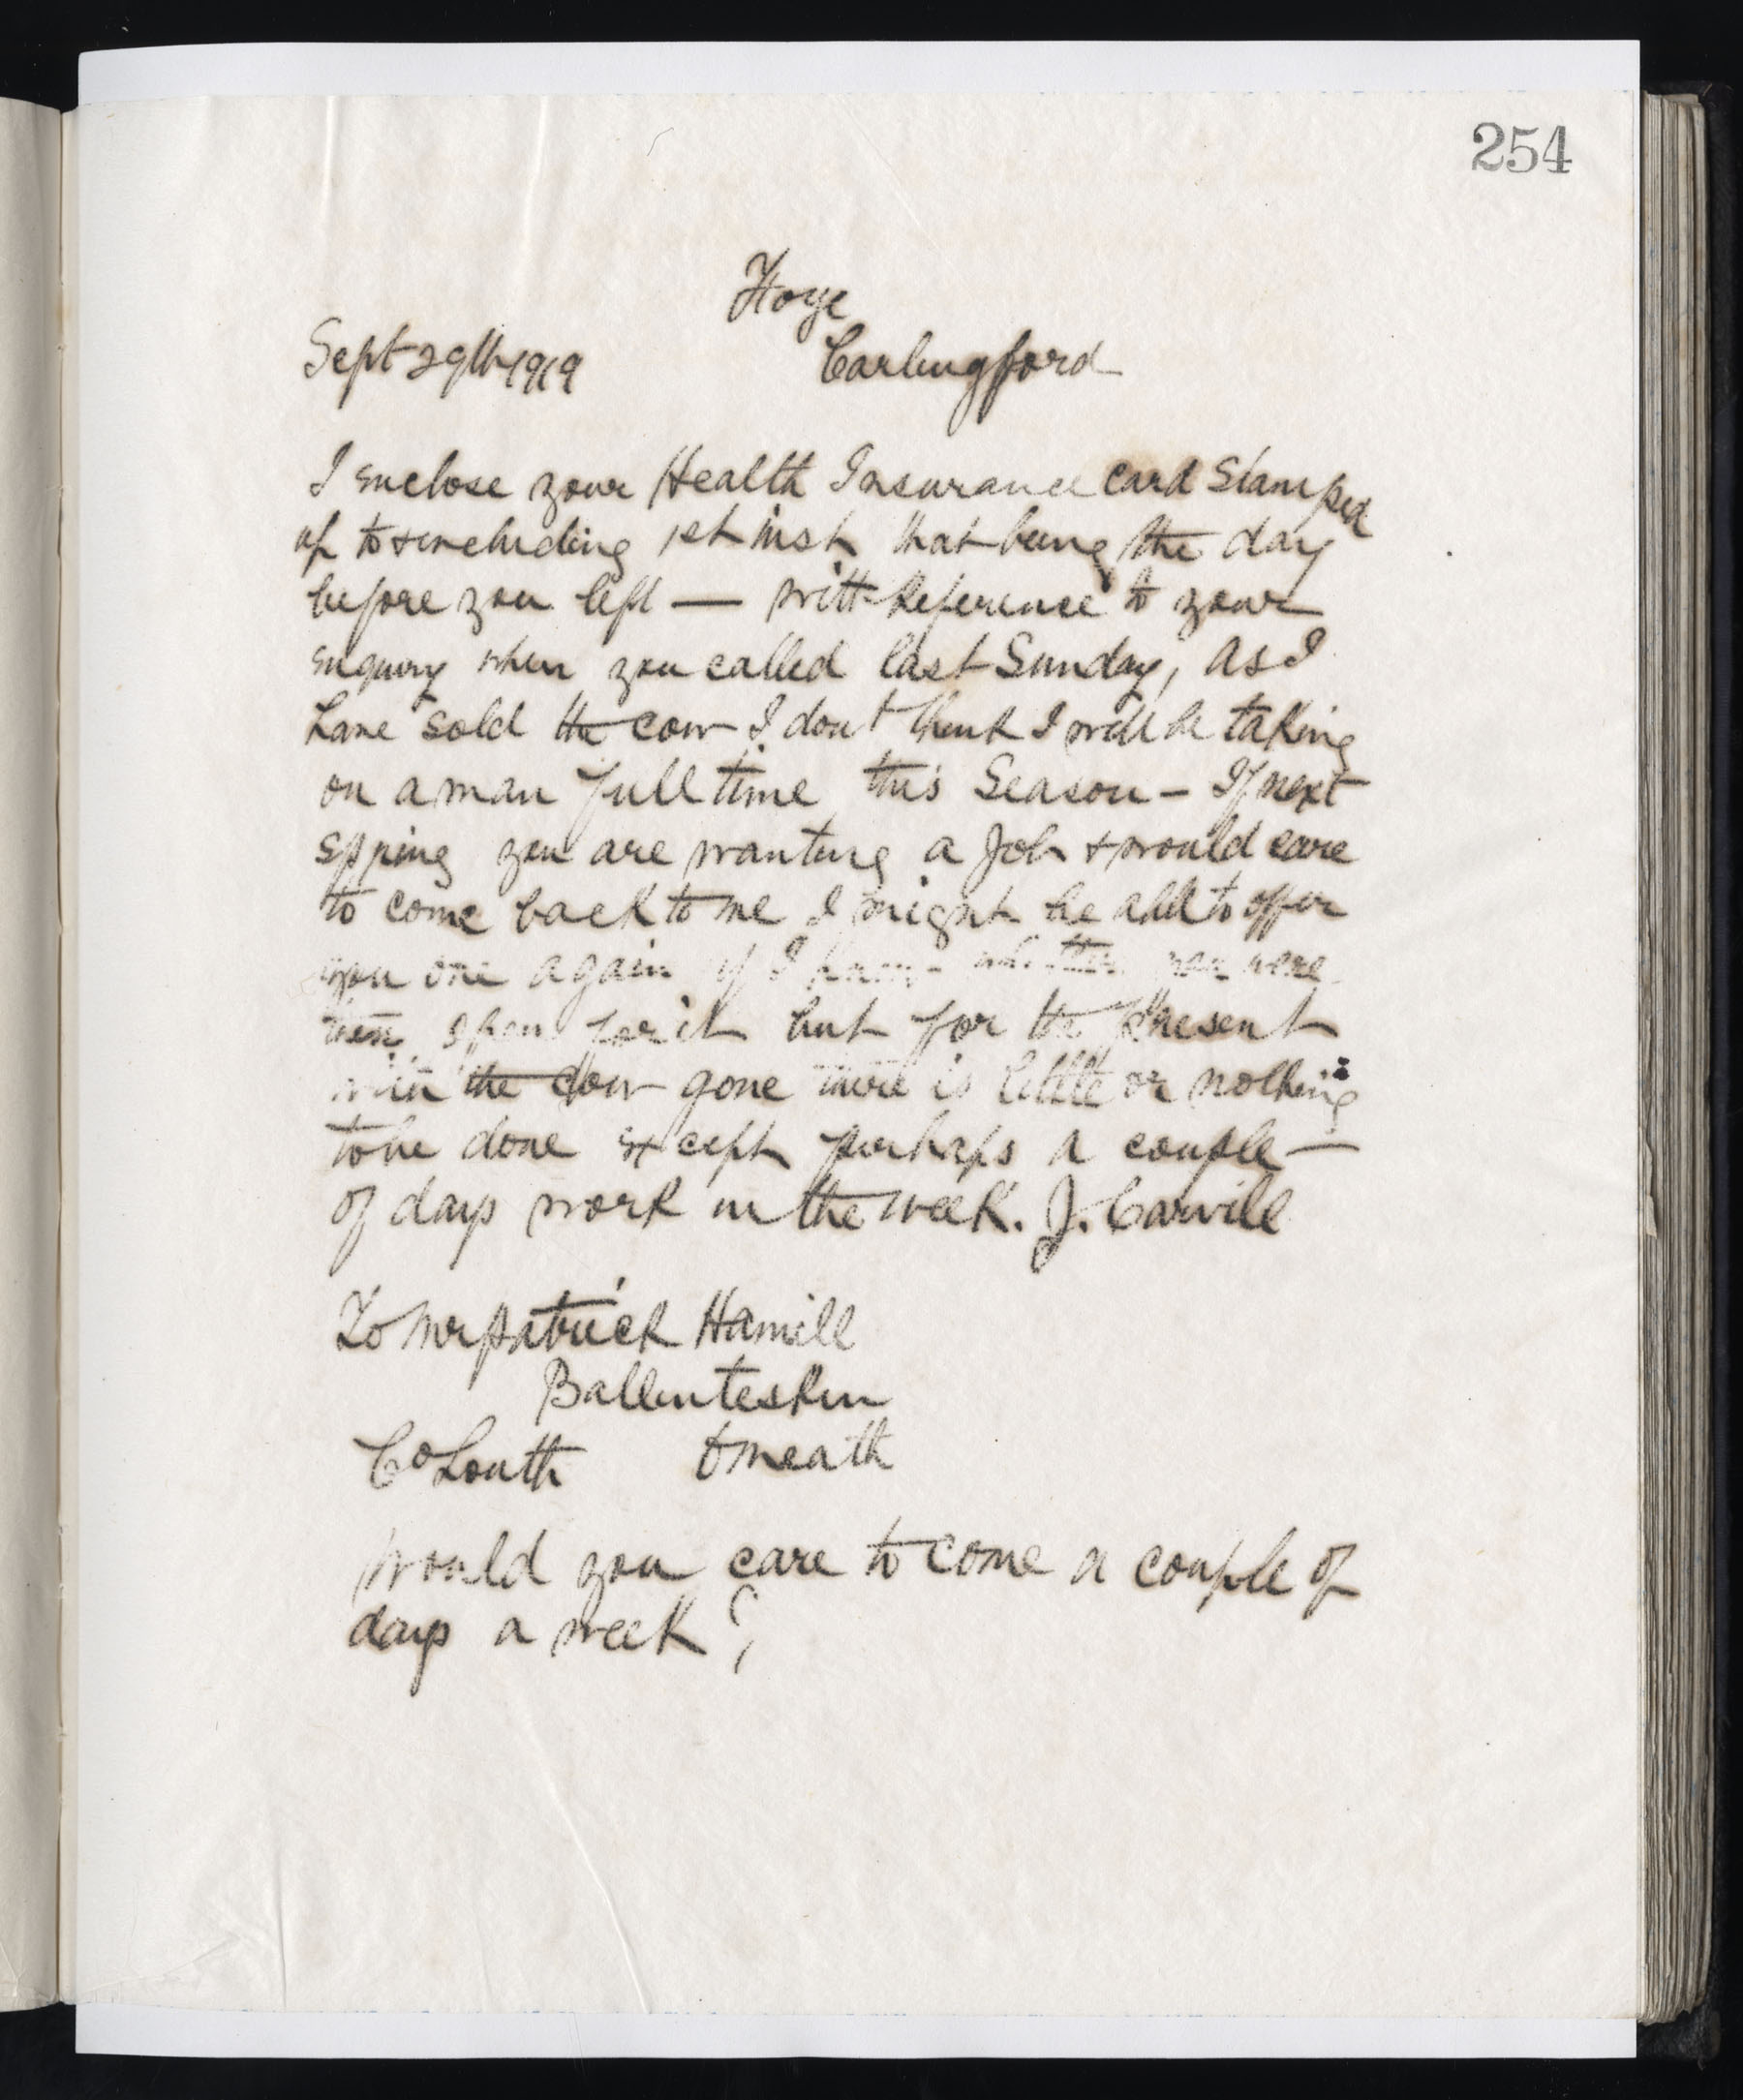 254
Hoye
Sept 29th 1919 Carlingford
I enclose your Health Insurance card Stamped
up to & including 1st inst that being the day
before you left — with Reference to your
enquiry when you called last Sunday, as I
have sold the cow I dont think I will be taking
on a man full time this Season - If next
spring you are wanting a Job & would care
to come back to me I might be able to offer
you one again if I knew whether you were
then open for it but for the present
with the cow gone there is little or nothing
to be done except perhaps a couple —
of days work in the week. J. Carvill
To Mr Patrick Hamill
Ballinteskin
Co Louth Omeath
Would you care to come a couple of
days a week?